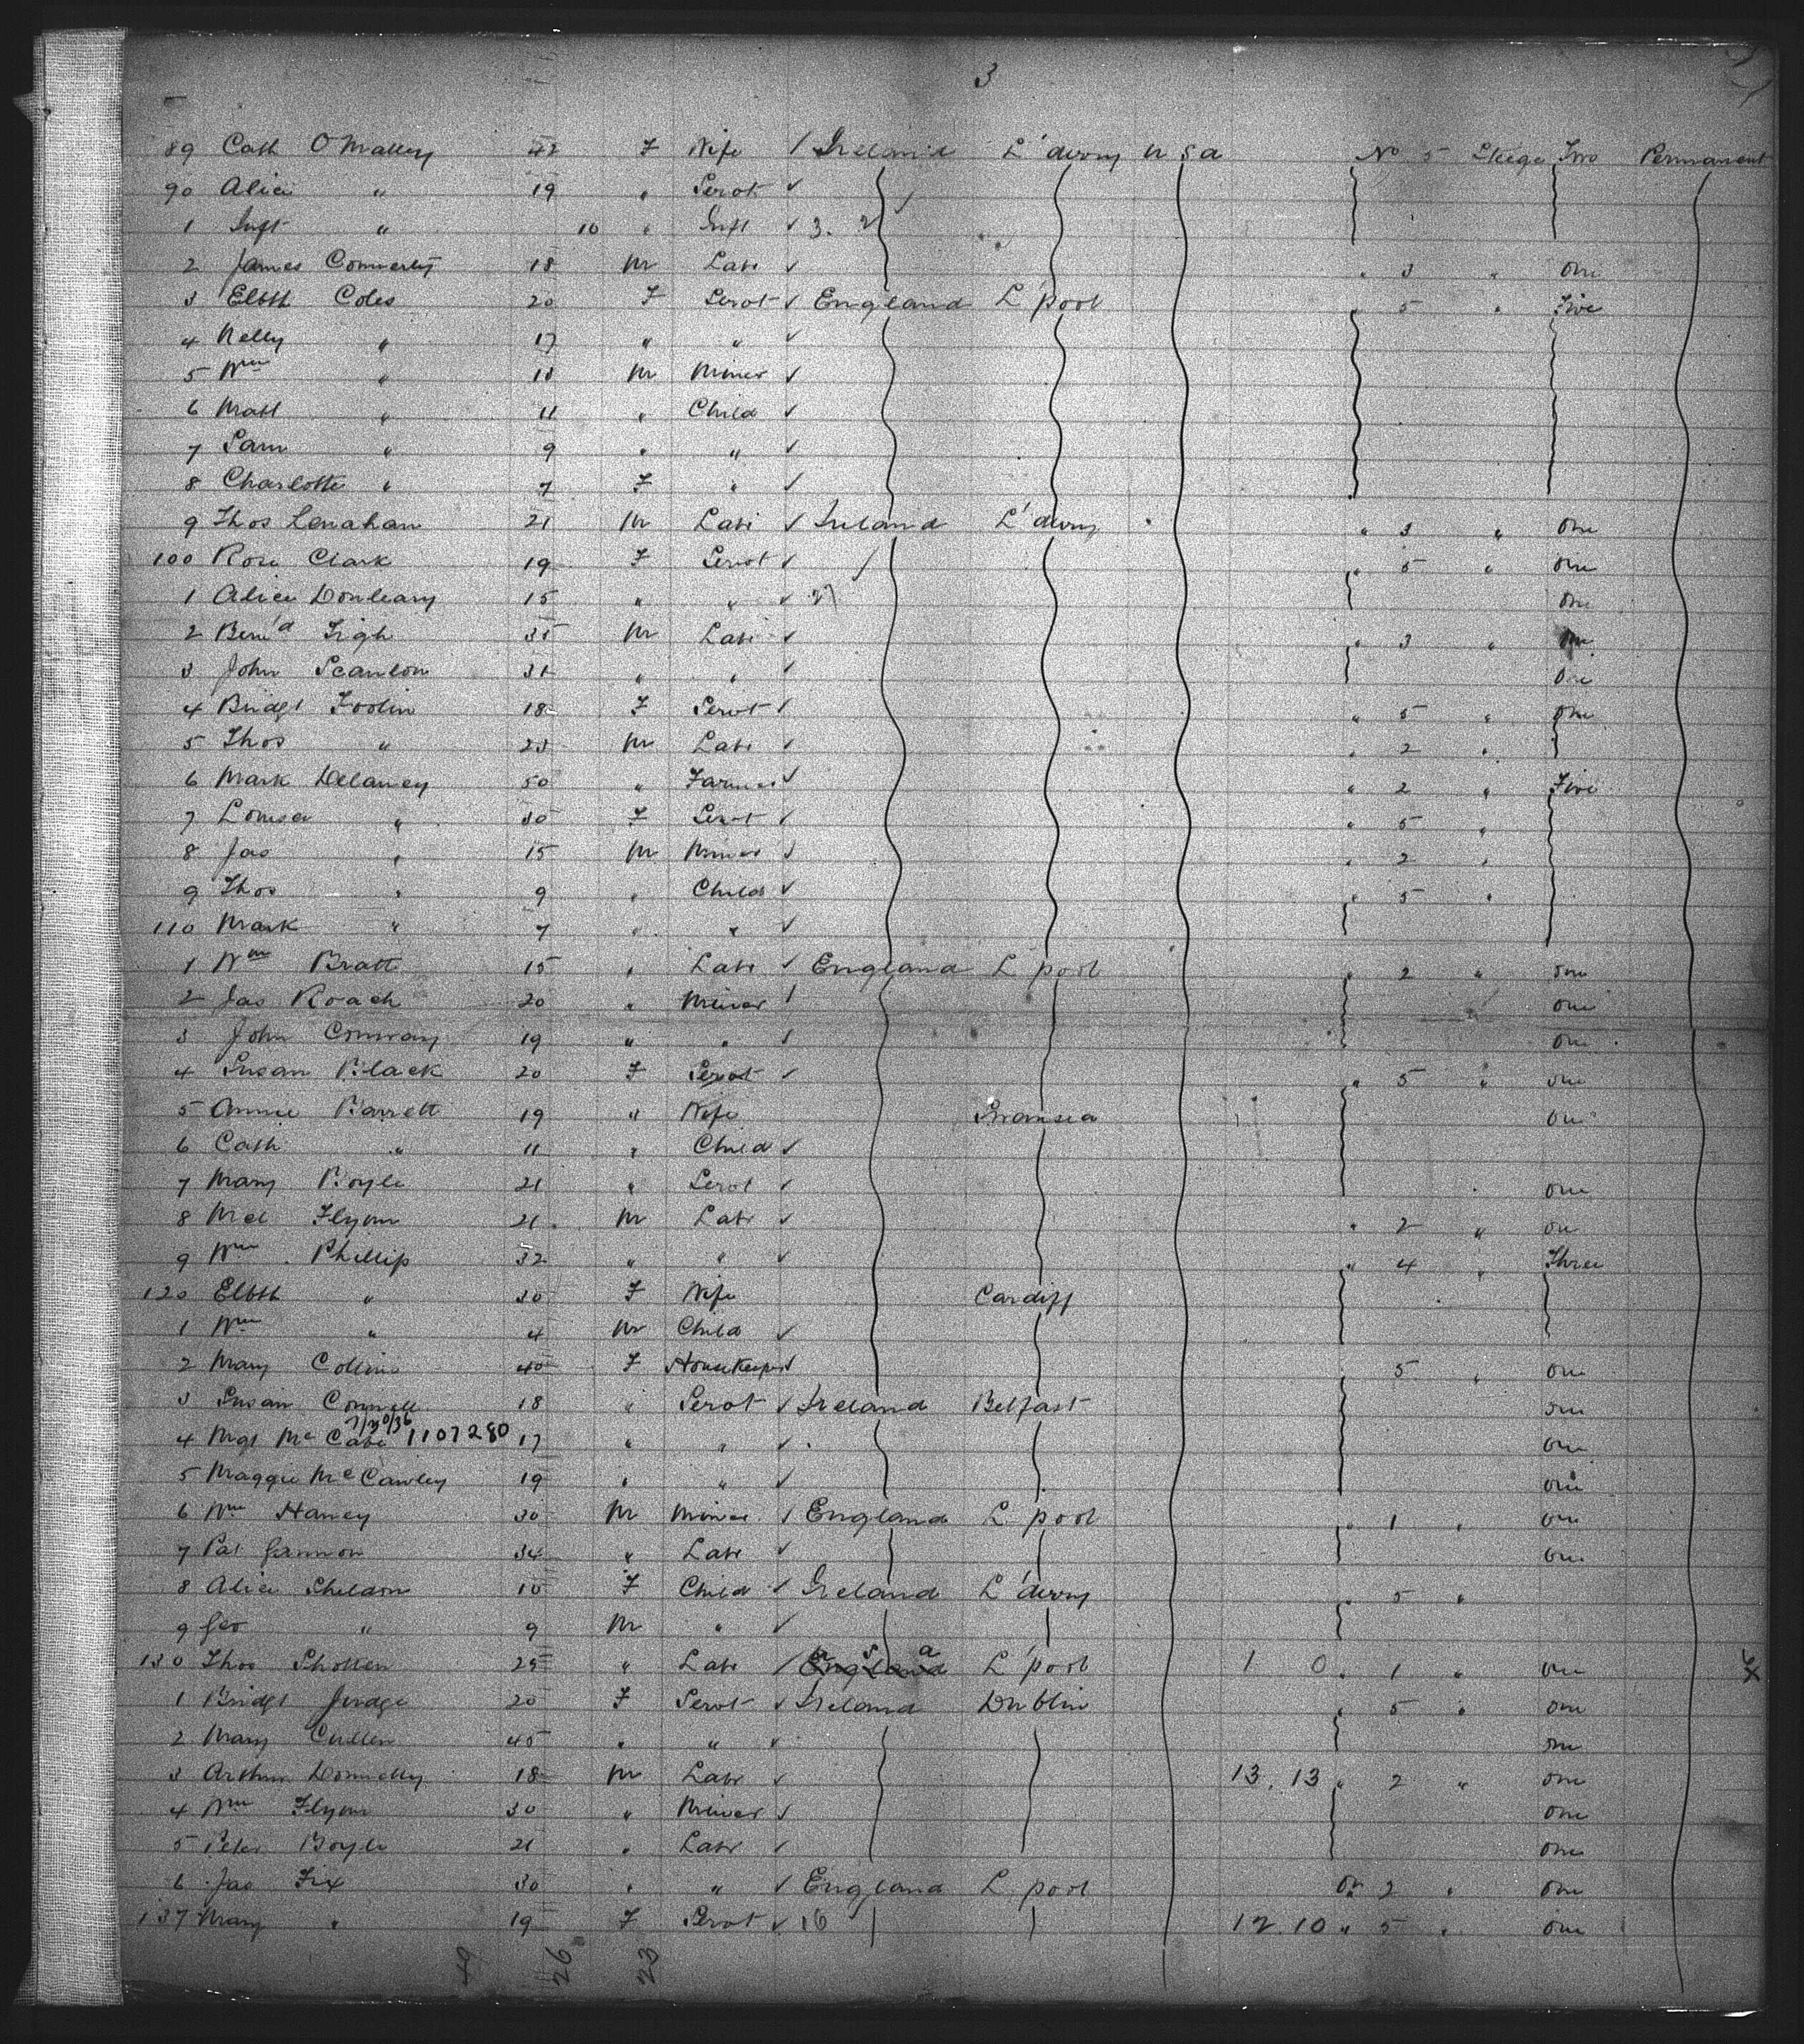 3
89 Cath O'Malley 42 F Wife / Ireland L'derry U S a No 5 Steege Two Permanent
90 Alice " 19 " Servt ✓
1 Inft " 10 " Inft ✓ 3.
2 James 18 M Labr ✓ " 3 " One
3 Elbth Coles 20 F Servt ✓ England L'pool " 5 " Five
4 Nelly " 17 " " ✓
5 Wm " M Miner ✓
6 Matt " 11 " Child ✓
7 Sam " 9 " " ✓
8 Charlotte " 7 F " ✓
9 Thos Lenahan 21 M Labr ✓ Ireland L'derry " 3 " One
100 Rose Clark 19 F Servt ✓ " 5 " One
1 Alice 15 " " ✓ One
2 Bern'd 35 M Labr ✓ " 3 " One
3 John Scanlon " " ✓ One
4 Bridgt 18 F Servt ✓ " 5 " One
5 Thos " 23 M Labr ✓ " 2 "
6 Mark Delaney 50 " Farmer ✓ " 2 " Five
7 Louisa " 30 F Servt ✓ " 5 "
8 Jas " 15 M Miner ✓ " 2 "
9 Thos " 9 " Child ✓ " 5 "
110 Mark " 7 " " ✓
1 Wm Bratt 15 " Labr ✓ England L'pool " 2 " One
2 Jas Roach 20 " Miner / One
3 John Conway 19 " " / One
4 Susan Black 20 F Servt ✓ " 5 " One
5 Annie Barrett 19 " Wife Swansea One
6 Cath " 11 " Child ✓
7 Mary Boyle 21 " Servt ✓ One
8 Mcl Flynn 21 M Labr ✓ " 2 " One
9 Wm Phillip 32 " " ✓ " 4 " Three
120 Elbth " 30 F Wife Cardiff
1 Wm " 4 M Child ✓
2 Mary Collins 40 F Housekeeper ✓ 5 " One
3 Susan Connell 18 " Servt ✓ Ireland Belfast One
4 Mgt McCabe 7/20/36 1107280 17 " " ✓ One
5 Maggie McCawley 19 " " ✓ One
6 Wm Haney 30 M Miner / England L'pool " 1 " One
7 Pat Gannon 34 " Labr ✓ One
8 Alice Sheldon 10 F Child ✓ Ireland L'derry " 5 "
9 Geo " 9 M " ✓
130 Thos Shotten 25 " Labr / England S a L'pool 1 0 " 1 " One
1 Bridgt Judge 20 F Servt ✓ Ireland Dublin " 5 " One
2 Mary Cullen 45 " " ✓ One
3 Arthur Donnelly 18 M Labr ✓ 13. 13 " 2 " One
4 Wm Flynn 30 " Miner ✓ One
5 Peter Boyle 21 " Labr ✓ One
6 Jas Fix 30 " " ✓ England L'pool 2 " One
137 Mary " 19 F Servt ✓ 16 12. 10 " 5 " One
49 26 23